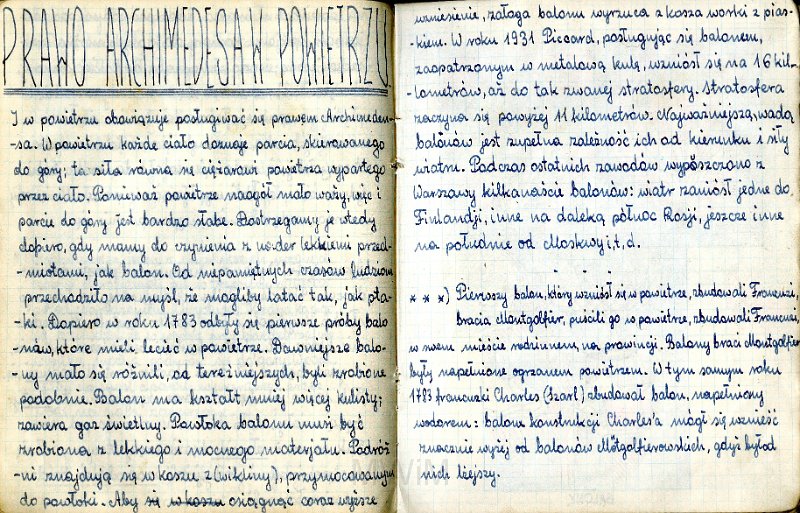 PRAWO ARCHIMEDESA W POWIETRZU.
I w powietrzu obowiązuje posługiwać się prawem Archimede-
-sa. W powietrzu każde ciało doznaje parcia, skierowanego
do góry; ta siła równa się ciężarowi powietrza wypartego
przez ciało. Ponieważ powietrze naogół mało waży, więc i
parcie do góry jest bardzo słabe. Dostrzegamy je wtedy
dopiero, gdy mamy do czynienia z nader lekkiemi przed-
-miotami, jak balon. Od niepamiętnych czasów ludziom
przechodziło na myśl, że mogliby latać tak, jak pta-
-ki. Dopiero w roku 1783 odbyły się pierwsze próby balo
-nów, które mieli, lecieć w powietrze. Dawniejsze balo-
-ny mało się różnili, od tereźniejszych, byli zrobione
podobnie. Balon ma kształt mniej więcej kulisty;
zawiera gaz świetlny. Powłoka balonu musi być
zrobiona z lekkiego i mocnego materjału. Podróż
-ni znajdują się w koszu z (wikliny), przymocowanym
do powłoki. Aby się w koszu osiągnąć coraz wyższe
wzniesienie, załoga balonu wyrzuca z kosza worki z pias-
-kiem. W roku 1931 Piccard, posługując się balonem,
zaopatrzonym w metalową kulę, wzniósł się na 16 kil-
-lometrów, aż do tak zwanej stratosfery. Stratosfera
zaczyna się powyżej 11 kilometrów. Najważniejszą wadą
balonów jest zupełna zależność ich od kierunku i siły
wiatru. Podczas ostatnich zawodów wypószczono z
Warszawy kilkanaście balonów: wiatr zaniósł jedne do
Finlandji, inne na daleką północ Rosji, jeszcze inne
na południe od Moskwy i, t, d.
* * *) Pierwszy balon, który wzniósł się w powietrze, zbudowali Francuzi,
bracia Montgolfier, puścili go w powietrze, zbudowali Francuzi,
w swem mieście rodzinnem, na prowincji. Balony braci Montgolfier
były napełnione ogrzanem powietrzem. W tym samym roku
1783 francuski Charles (Szarl) zbudował balon, napełniony
wodorem: balon konstrukcji Charles'a mógł się wznieść
znacznie wyżej od balonów Mótgolfierowskich, gdyż był od
nich lżejszy.